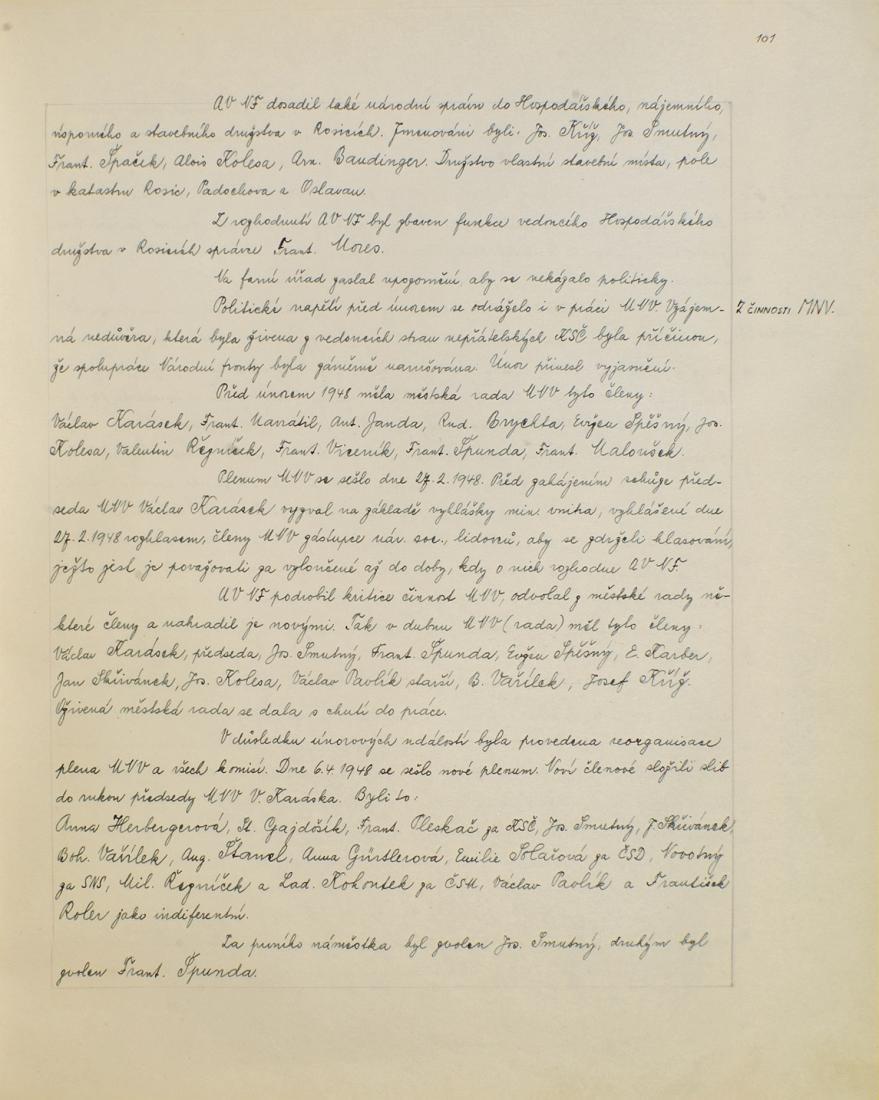 101
AV NF dosadil také národní správu do Hospodářského, nájemního,
úsporného a stavebního družstva v Rosicích. Jmenováni byli: Jos. Kříž, Jos Smutný,
Frant. Špaček, Alois Kolesa, Arn. Baudinger. Družstvo vlastní stavební místa, pole
v katastru Rosic, Padochova a Oslavan.
Z rozhodnutí AV NF byl zbaven funkce vedoucího Hospodářského
družstva v Rosicích správce Frant. Mores.
Na farní úřad zaslal upozornění, aby se nekázalo politicky.
Politické napětí před únorem se odráželo i v práci MNV. Vzájem-
Z ČINNOSTI MNV.
ná nedůvěra, která byla živena z vedoucích stran nepřátelských KSČ byla příčinou,
že spolupráce Národní fronty byla záměrně narušována. Únor přinesl vyjasnění.
Před únorem 1948 měla městská rada MNV tyto členy:
Václav Karásek, Frant. Navrátil, Ant. Janda, Rud. Brychta, Evžen Spěšný, Jos.
Kolesa, Valentin Řezníček, Frant. Viceník, Frant. Špunda, Frant. Maloušek.
Plenum MNV se sešlo dne 27.2.1948. Před zahájením schůze před-
seda MNV Václav Karásek vyzval na základě vyhlášky min. vnitra, vyhlášené dne
27.2.1948 rozhlasem, členy MNV zástupce nár. soc., lidovců, aby se zdrželi hlasování,
ježto jest je považovati za vyloučené až do doby, kdy o nich rozhodne AV NF.
AV NF podrobil kritice činnost MNV, odvolal z městské rady ně-
které členy a nahradil je novými. Tak v dubnu MNV (rada) měl tyto členy:
Václav Karásek, předseda, Jos. Smutný, Frant. Špunda, Evžen Spěšný, E. Karber,
Jan Skřivánek, Jos. Kolesa, Václav Pavlík starší, B. Vašílek, Josef Kříž.
Oživená městská rada se dala s chutí do práce.
V důsledku únorových událostí byla provedena reorganisace
plena MNV a všech komisí. Dne 6.4.1948 se sešlo nové plenum. Noví členové složili slib
do rukou předsedy MNV V. Karáska. Byli to:
Anna Herbergerová, St. Gajdošík, Frant. Pleskač za KSČ, Jos. Smutný, J. Skřivánek,
Boh. Vašílek, Aug. Štancl, Anna Gürtlerová, Emilie Solařová za ČSD, Novotný
za SNS, Mil. Řezníček a Lad. Kohoutek za ČSM, Václav Pavlík a František
Roler jako indiferentní.
Za prvního náměstka byl zvolen Jos. Smutný, druhým byl
zvolen Frant. Špunda.